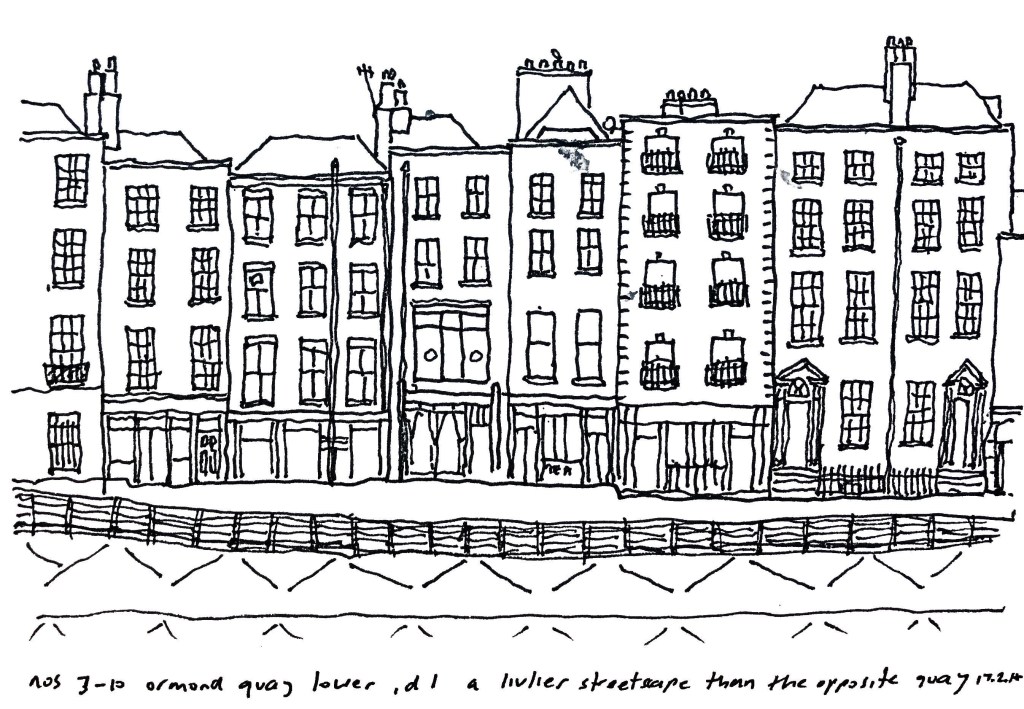 nos 3-10 ormond quay lower, d1 a livlier streetscape than the opposite quay 17.2.14